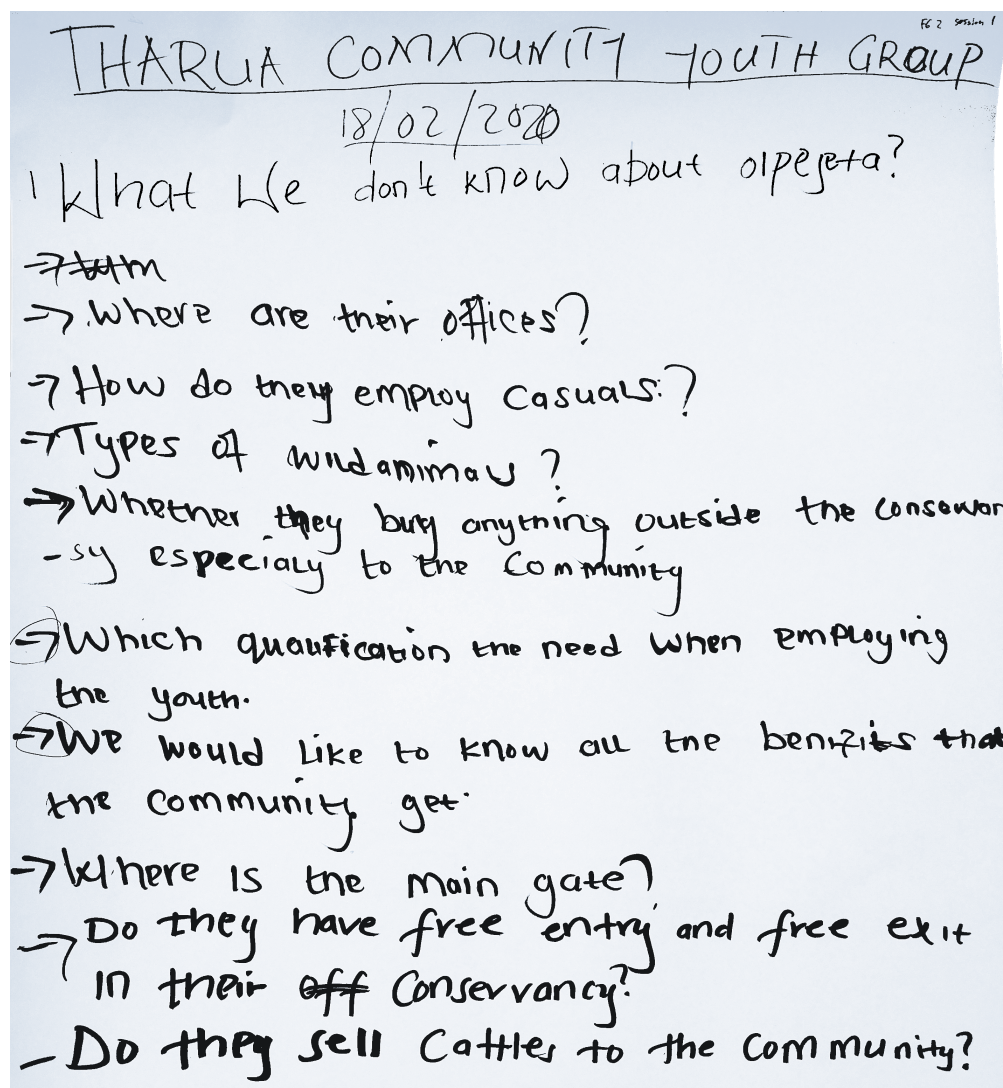 FG 2 Session 1
THARUA COMMUNITY YOUTH GROUP
18/02/2020
1 What We don't know about olpejeta?
→
→ Where are their offices?
→ How do they employ Casuals?
→ Types of wildanimals?
→ Whether they buy anything outside the conservan
- sy especialy to the Community
→ Which qualification the need when employing
the youth.
→ We would like to know all the benifits that
the community get.
→ Where is the main gate?
→ Do they have free entry and free exit
in their off Conservancy?
- Do they sell Cattles to the community?